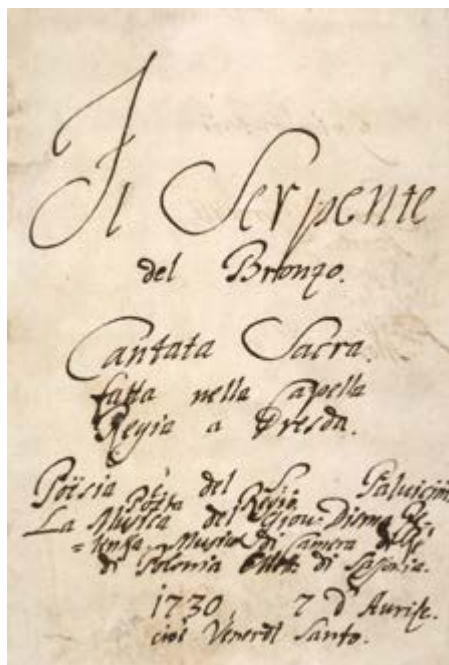 Il Serpente
del Bronzo.
Cantata Sacra.
fatta nella Capella
Regia a Dresda.
Poesia è del S. Palavicini
Poeta Regio
La Musica del Giov: Disma Ze-
=lenka Musico di Camera di
di Polonia Elett. di Sassonia.
1730 7 d'Aurile.
cioè Venerdì Santo.